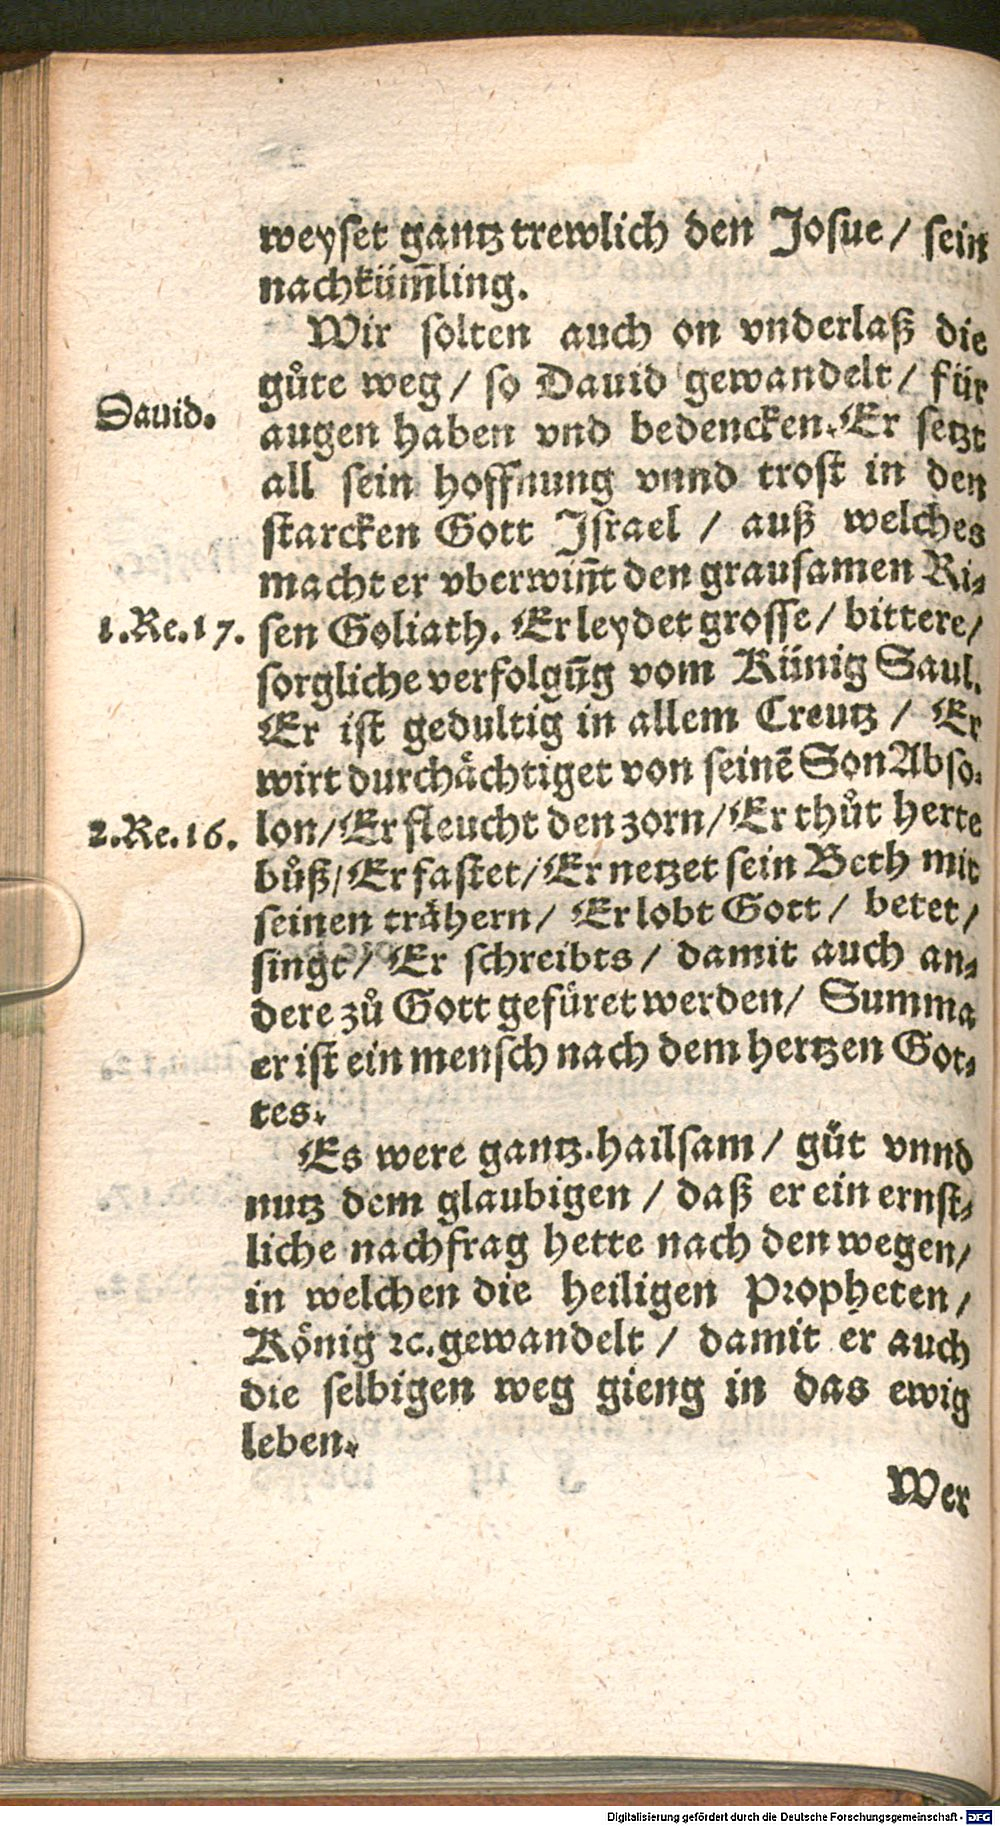 weyset gantz trewlich den Josue / sein
nachküm̄ling.
Wir solten auch on vnderlaß die
gůte weg / so Dauid gewandelt / für
Dauid.
augen haben vnd bedencken. Er setzt
all sein hoffnung vnnd trost in den
starcken Gott Israel / auß welches
macht er vberwiñt den grausamen Ri⸗
1.Re.17.
sen Goliath. Er leydet grosse / bittere /
sorgliche verfolgūg vom Künig Saul.
Er ist gedultig in allem Creutz / Er
wirt durchächtiget von seinē Son Abso⸗
2.Re.16.
lon / Er fleucht den zorn / Er thůt herte
bůß / Er fastet / Er netzet sein Beth mit
seinen trähern / Er lobt Gott / betet /
singt / Er schreibts / damit auch an⸗
dere zů Gott gefüret werden / Summa
er ist ein mensch nach dem hertzen Got⸗
tes.
Es were gantz hailsam / güt vnnd
nutz dem glaubigen / daß er ein ernst⸗
liche nachfrag hette nach den wegen /
in welchen die heiligen Propheten /
König ꝛc. gewandelt / damit er auch
die selbigen weg gieng in das ewig
leben.
Wer
Digitalisierung gefördert durch die Deutsche Forschungsgemeinschaft - DFG